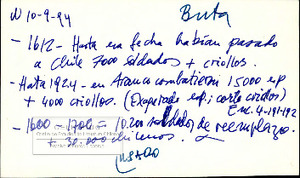 N 10-9-94
Buta
- 1612 - Hasta esa fecha habían pasado
a Chile 7000 soldados + criollos.
- Hasta 1924 - en Arauco combatieron 15000 esp
+ 4000 criollos. (Exagerado esp; corto criollos)
Enc. 4-191-192
- 1600 - 1700 = 10.200 soldados de reemplazo.
+ 30.000 chilenos.
USADO